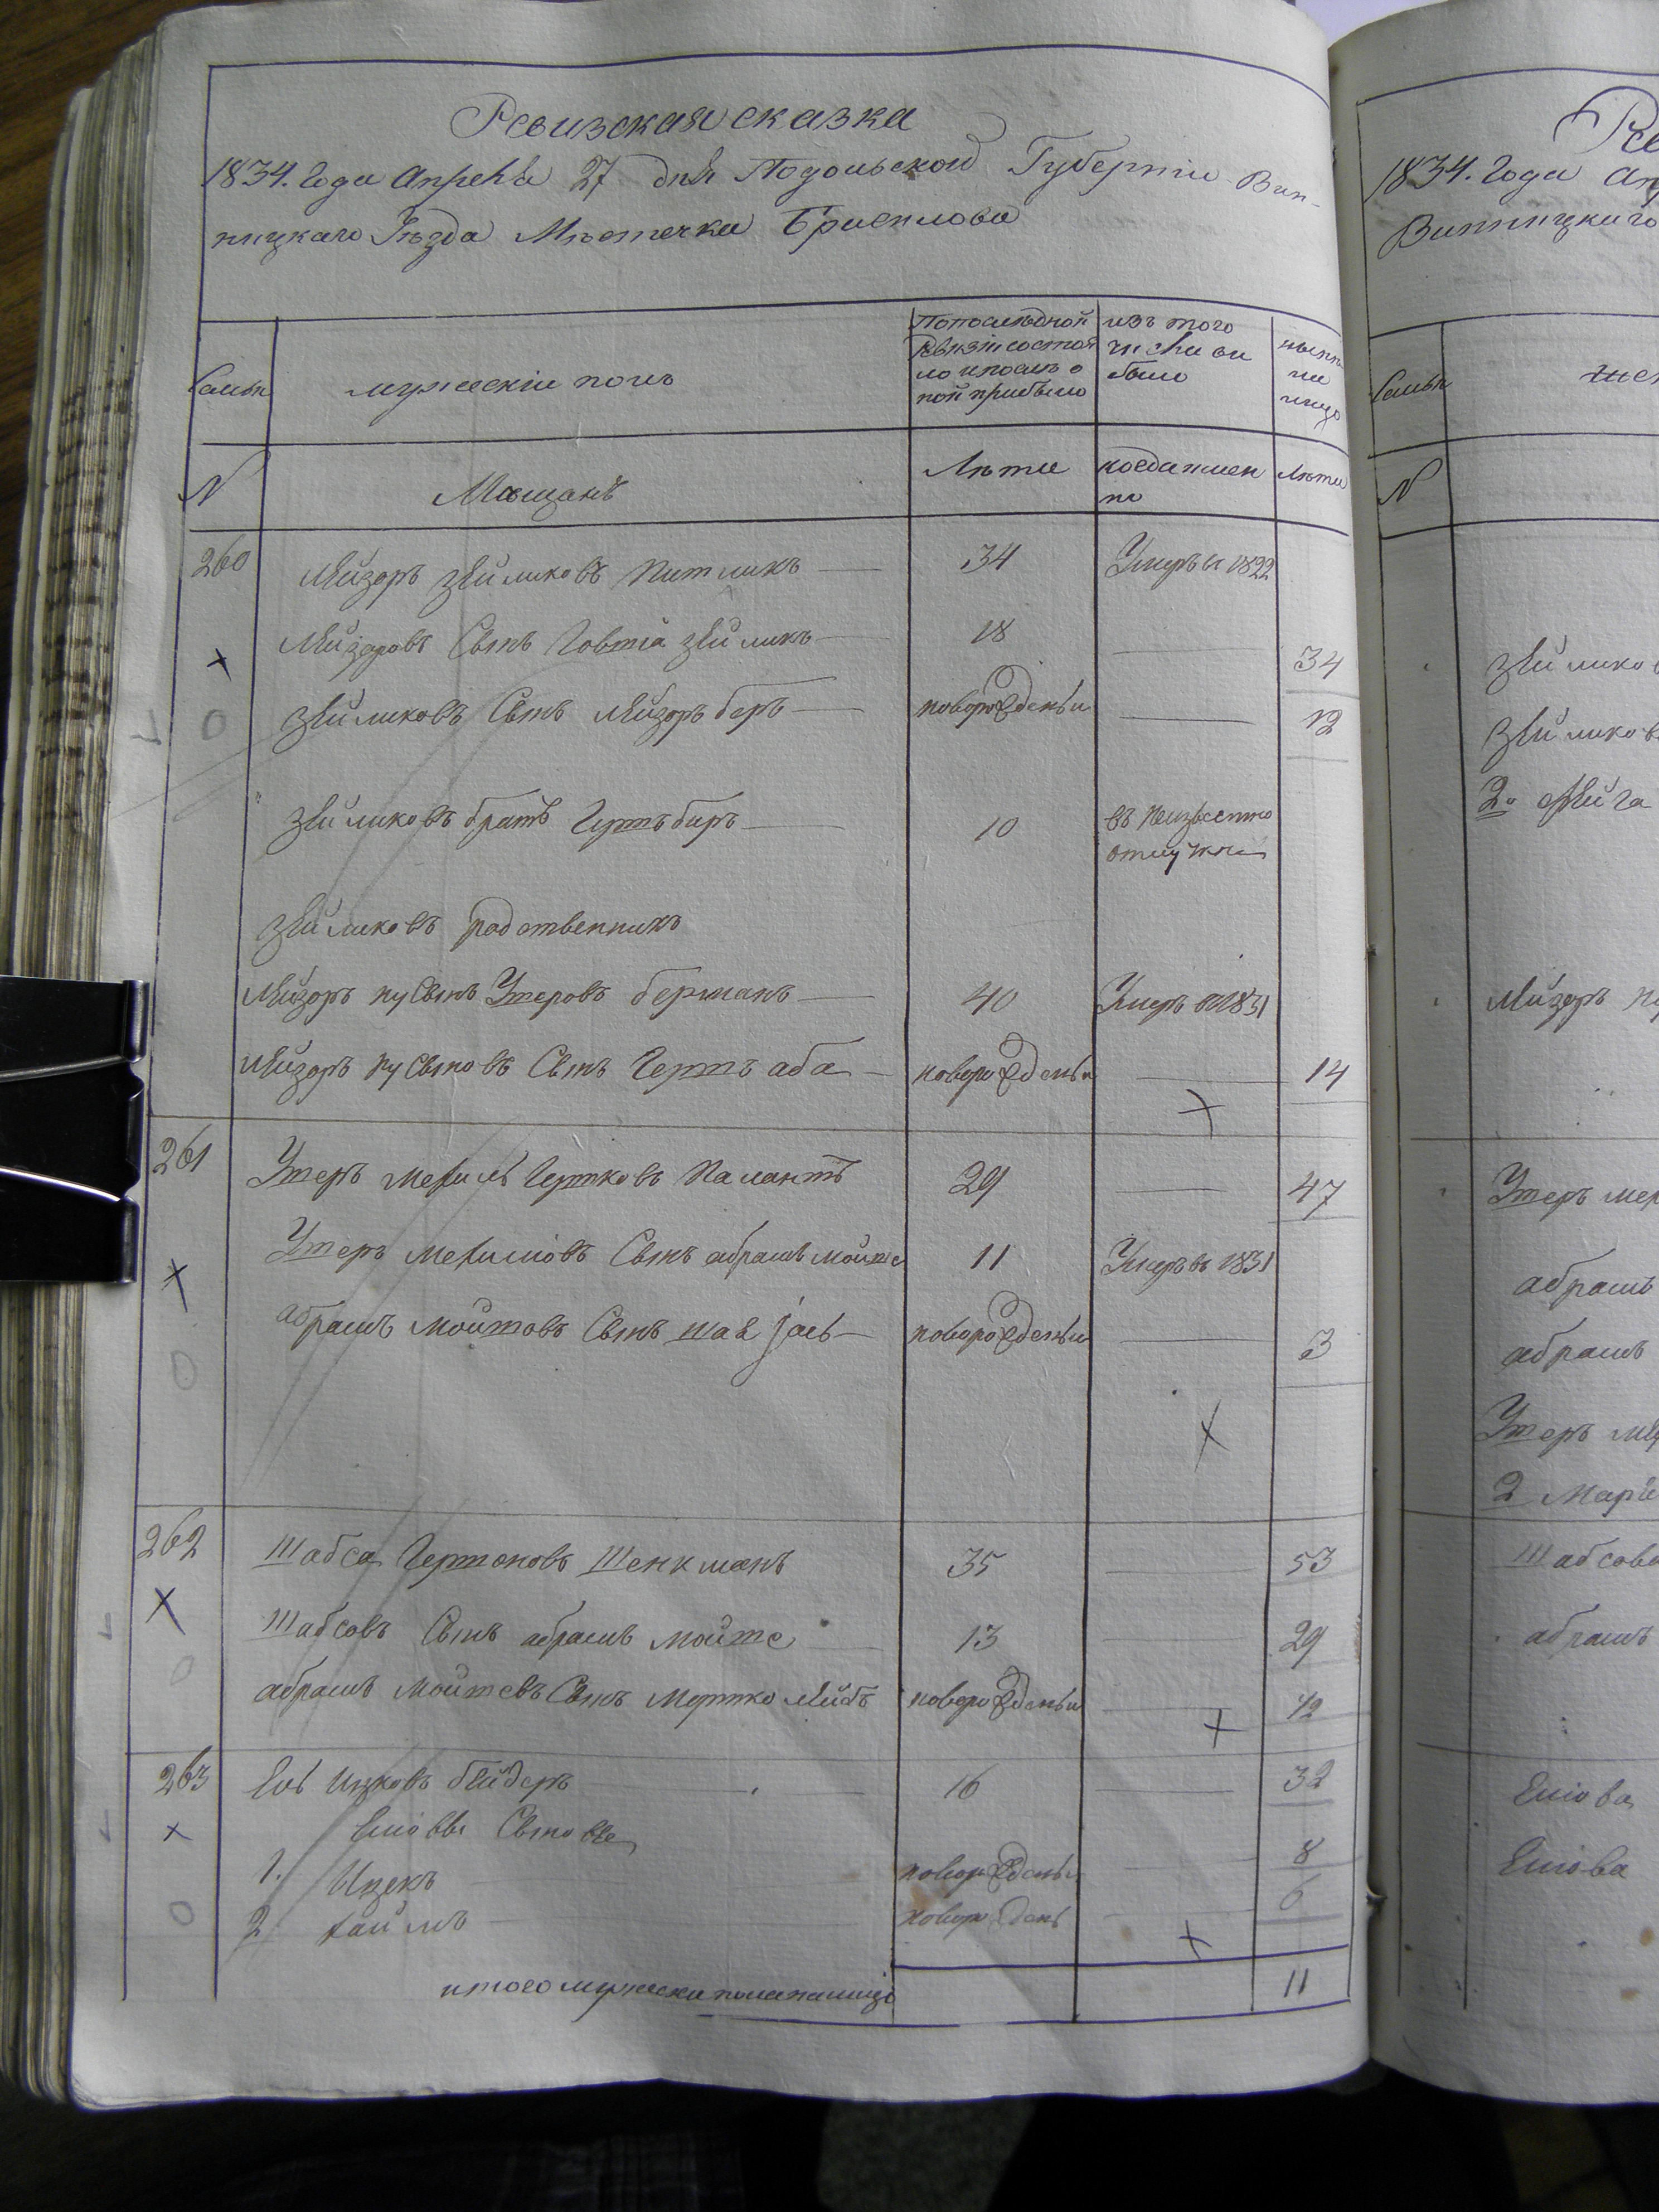 Ревизская сказка
1834. Года Апреля 27 дня Подольской Губернiи Вин-
ницкаго Уезда Местечка Браилова
Семьи
мужескiй полъ
По последной ревизiи состояло и после оной прибыло
изъ того числа выбыло
ныне на лицо
N
Мещанъ
Лета
когда имен но
Лета
260 Лейзоръ Зейликовъ Китликъ 34 Умеръ въ 1822
Лейзоровъ Сынъ Зейликъ 18 34
Зейликовъ Сынъ Лейзоръ беръ новорожденый 12
Зейликовъ братъ Герть беръ 10 въ неизвестно отлучки
Зейликовъ родственникъ
Лейзоръ Утеровъ берманъ 40 Умеръ 1831
Лейзоръ Сынъ Герть аба новорожденый 14
261 Утеръ Мехиль Гершковъ Палантъ 29 47
Утеръ Мехилiовъ Сынъ абрамъ мойше 11 Умеръ въ 1831
абрамъ мойшовъ Сынъ новорожденый 3
262 Шабса Гершоновъ Шенкманъ 35 53
Шабсовъ Сынъ абрамъ мойше 13 29
абрамъ мойшевъ Сынъ Мортко лейбъ новорожденый 12
263 Ель Ицковъ бейдеръ 16 32
Елiовы Сыновья
1. Ицекъ новорожденый 8
2 хаимъ новорожден 6
итого мужеска пола налицо 11
1834. Года Ап
Винницкаго
Семьи
жен
N
Зейликов
Зейликов
2. хейга
Лейзоръ
Утеръ мех
абрамъ
абрамъ
Утеръ
2 Марiе
Шабсова
абрамъ
Елiова
Елiова